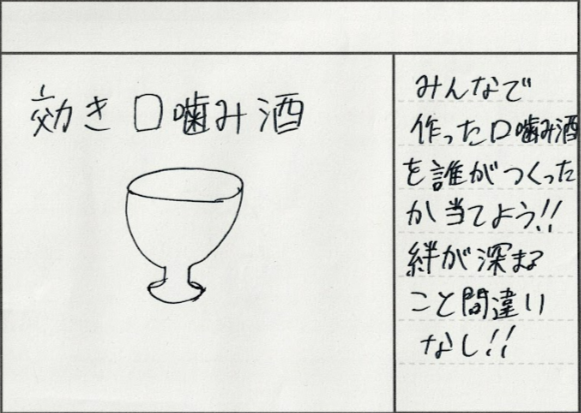 効き口噛み酒
みんなで
作った口噛み酒
を誰がつくった
か当てよう!!
絆が深まる
こと間違い
なし!!